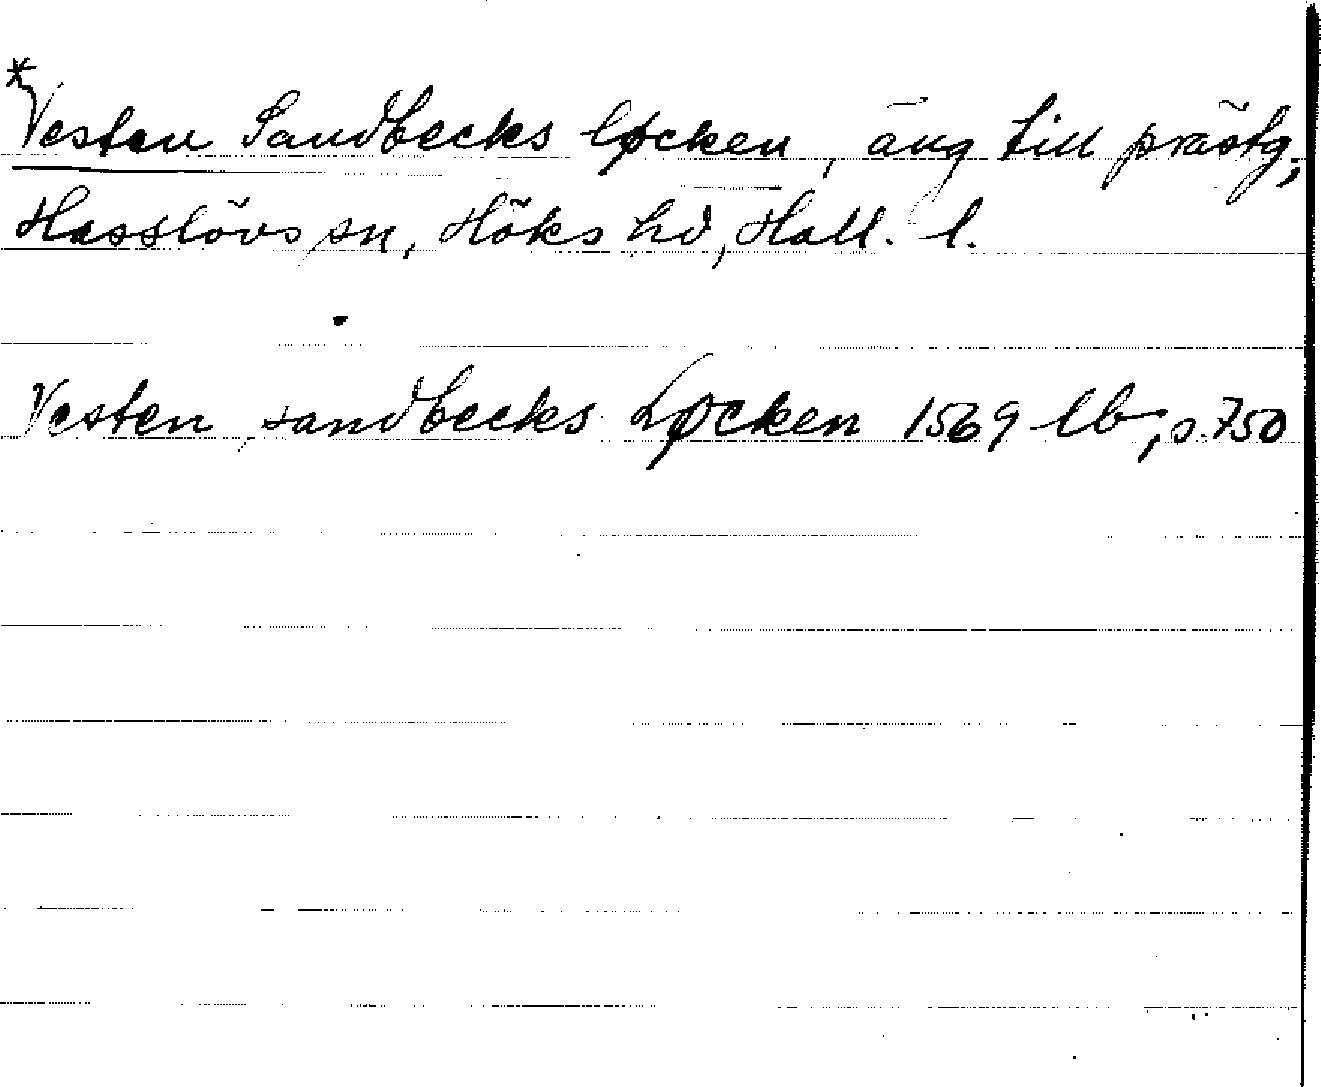 *Vesten Sandbecks løcken, äng till prästg,
Hasslövs sn, Höks hd, Hall. l.
Vesten sandbecks Løcken 1569 lb, s. 750